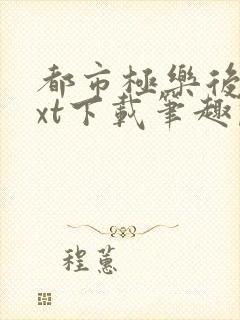 都市極樂後
xt下載筆趣
程蕙